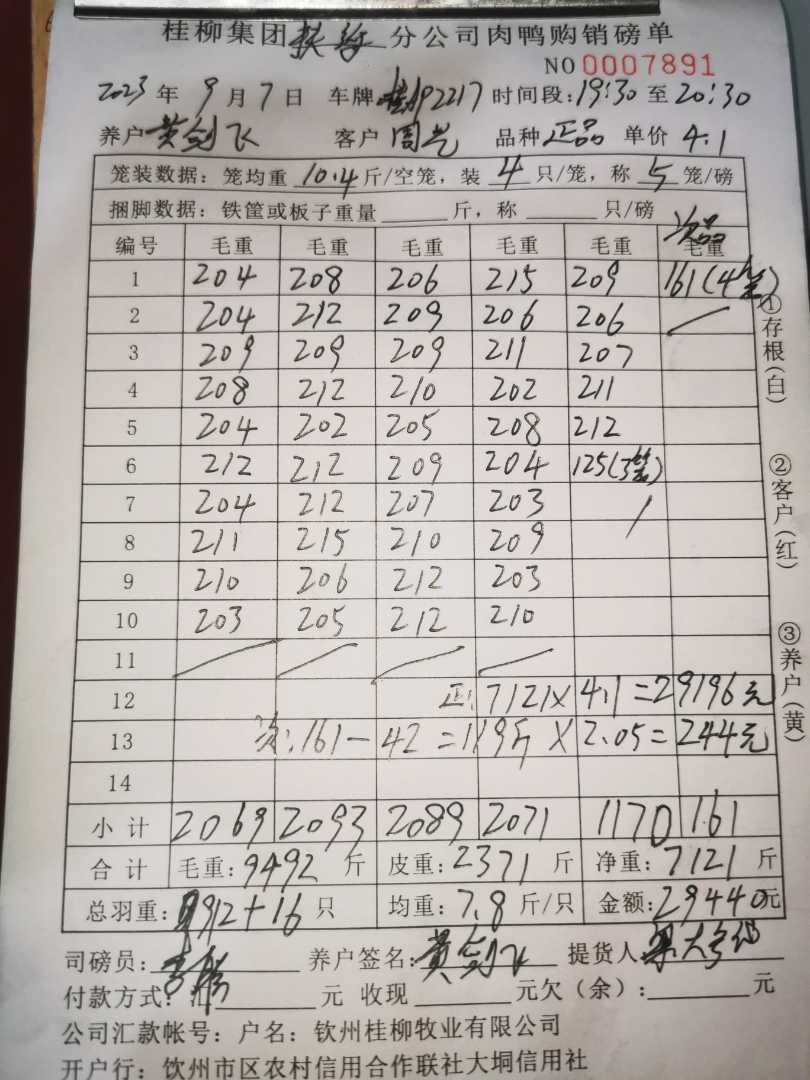 桂柳集团扶绥分公司肉鸭购销磅单
NO 0007891
2023年9月7日 车牌 桂 时间段:19:30至20:30
养户 黄剑飞 客户 周 品种 正品 单价 4.1
笼装数据: 笼均重 10.4 斤/空笼, 装 4 只/笼, 称 5 笼/磅
捆脚数据: 铁筐或板子重量 斤, 称 只/磅
次品
编号 毛重 毛重 毛重 毛重 毛重 毛重
1 204 208 206 215 209 161(4笼)
2 204 212 209 206 206
3 209 209 209 211 207
4 208 212 210 202 211
5 204 202 205 208 212
6 212 212 209 204 125(3笼)
7 204 212 207 203
8 211 215 210 209
9 210 206 212 203
10 203 205 212 210
11
12 正: 7121×4.1=29196元
13 次: 161-42=119斤×2.05=244元
14
小计 2069 2093 2089 2071 1170 161
合计 毛重: 9492 斤 皮重: 2371 斤 净重: 7121 斤
总羽重: 912+16 只 均重: 7.8 斤/只 金额: 29440元
司磅员: 养户签名: 黄剑飞 提货人
付款方式: 汇 元 收现 元欠(余): 元
公司汇款帐号: 户名: 钦州桂柳牧业有限公司
开户行: 钦州市区农村信用合作联社大垌信用社
①存根(白)
②客户(红)
③养户(黄)